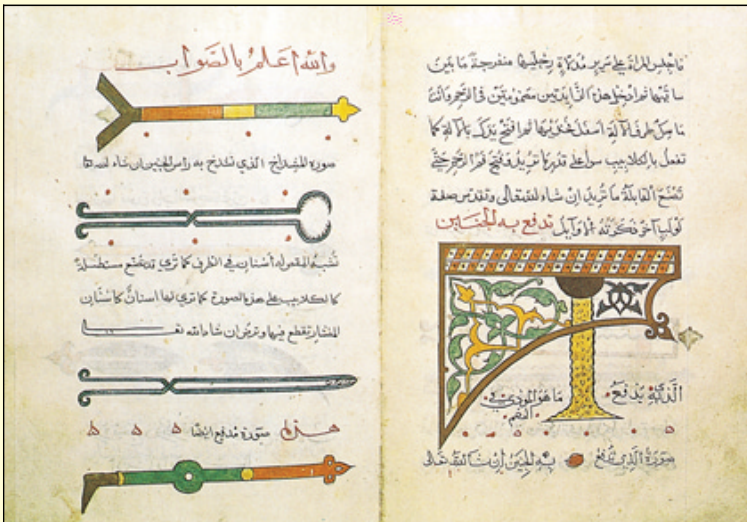 فاجلس المراة على سرير مدلاة رجليها منفرجة ما بين
ساقيها ثم ادخل هذن الزايدتين مضمومتين في الرحم وانت
ماسك طرف الآلة اسفل فخذيها ثم افتح يدك بالآلة كما
تفعل بالكلاليب سوا على قدر ما تريد وتفتح فم الرحم حتى
تصنع القابلة ما تريد ان شاء الله تعالى وتقدس صفة
لولب آخر ذكرته الاوايل تدفع به الجنين
الذي يدفع ما هو الموذي في
الفم
صورة الذي تدفع به الجنين ان شا الله تعالى
والله اعلم بالصواب
صورة المشداخ الذي تشدخ به راس الجنين ان شاء الله تعا
تشبه المقص له اسنان في الطرف كما تري تصنع مستطيلة
كالكلاليب على هذه الصورة كما تري لها اسنان كاسنان
المنشار تقطع فيها وترض ان شاء الله تعا
هذه صورة مدفع ايضا ه ه ه